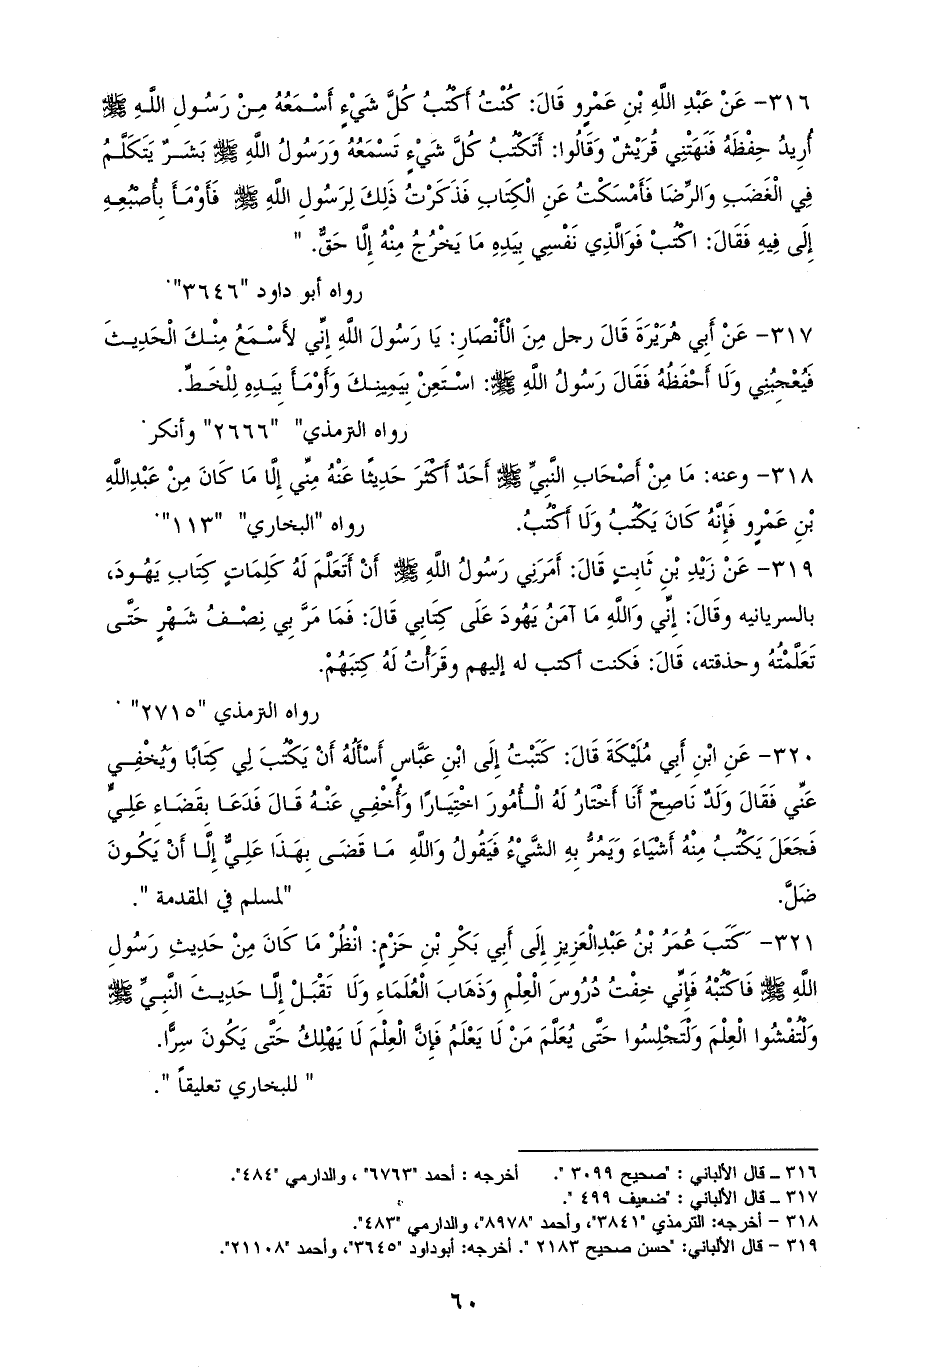 ٣١٦- عَنْ عَبْدِ اللَّهِ بْنِ عَمْرٍو قَالَ: كُنْتُ أَكْتُبُ كُلَّ شَيْءٍ أَسْمَعُهُ مِنْ رَسُولِ اللَّهِ ﷺ
أُرِيدُ حِفْظَهُ فَنَهَتْنِي قُرَيْشٌ وَقَالُوا: أَتَكْتُبُ كُلَّ شَيْءٍ تَسْمَعُهُ وَرَسُولُ اللَّهِ ﷺ بَشَرٌ يَتَكَلَّمُ
فِي الْغَضَبِ وَالرِّضَا فَأَمْسَكْتُ عَنِ الْكِتَابِ فَذَكَرْتُ ذَلِكَ لِرَسُولِ اللَّهِ ﷺ فَأَوْمَأَ بِأُصْبُعِهِ
إِلَى فِيهِ فَقَالَ: اكْتُبْ فَوَالَّذِي نَفْسِي بِيَدِهِ مَا يَخْرُجُ مِنْهُ إِلَّا حَقٌّ. "
رواه أبو داود "٣٦٤٦".
٣١٧- عَنْ أَبِي هُرَيْرَةَ قَالَ رجل مِنَ الْأَنْصَارِ: يَا رَسُولَ اللَّهِ إِنِّي لأَسْمَعُ مِنْكَ الْحَدِيثَ
فَيُعْجِبُنِي وَلَا أَحْفَظُهُ فَقَالَ رَسُولُ اللَّهِ ﷺ: اسْتَعِنْ بِيَمِينِكَ وَأَوْمَأَ بِيَدِهِ لِلْخَطِّ.
رواه الترمذي" "٢٦٦٦" وأنكر.
٣١٨- وعنه: مَا مِنْ أَصْحَابِ النَّبِيِّ ﷺ أَحَدٌ أَكْثَرَ حَدِيثًا عَنْهُ مِنِّي إِلَّا مَا كَانَ مِنْ عَبْدِاللَّهِ
بْنِ عَمْرٍو فَإِنَّهُ كَانَ يَكْتُبُ وَلَا أَكْتُبُ. رواه "البخاري" "١١٣".
٣١٩- عَنْ زَيْدِ بْنِ ثَابِتٍ قَالَ: أَمَرَنِي رَسُولُ اللَّهِ ﷺ أَنْ أَتَعَلَّمَ لَهُ كَلِمَاتٍ كِتَابِ يَهُودَ،
بالسريانيه وقَالَ: إِنِّي وَاللَّهِ مَا آمَنُ يَهُودَ عَلَى كِتَابِي قَالَ: فَمَا مَرَّ بِي نِصْفُ شَهْرٍ حَتَّى
تَعَلَّمْتُهُ وحذقته، قَالَ: فَكنت أكتب له إليهم وقَرَأْتُ لَهُ كِتبَهُمْ.
رواه الترمذي "٢٧١٥".
٣٢٠- عَنِ ابْنِ أَبِي مُلَيْكَةَ قَالَ: كَتَبْتُ إِلَى ابْنِ عَبَّاسٍ أَسْأَلُهُ أَنْ يَكْتُبَ لِي كِتَابًا وَيُخْفِي
عَنِّي فَقَالَ وَلَدٌ نَاصِحٌ أَنَا أَخْتَارُ لَهُ الْأُمُورَ اخْتِيَارًا وَأُخْفِي عَنْهُ قَالَ فَدَعَا بِقَضَاءِ عَلِيٍّ
فَجَعَلَ يَكْتُبُ مِنْهُ أَشْيَاءَ وَيَمُرُّ بِهِ الشَّيْءُ فَيَقُولُ وَاللَّهِ مَا قَضَى بِهَذَا عَلِيٌّ إِلَّا أَنْ يَكُونَ
ضَلَّ. "لمسلم في المقدمة ".
٣٢١- كَتَبَ عُمَرُ بْنُ عَبْدِالْعَزِيزِ إِلَى أَبِي بَكْرِ بْنِ حَزْمٍ: انْظُرْ مَا كَانَ مِنْ حَدِيثِ رَسُولِ
اللَّهِ ﷺ فَاكْتُبْهُ فَإِنِّي خِفْتُ دُرُوسَ الْعِلْمِ وَذَهَابَ الْعُلَمَاءِ وَلَا تَقْبَلْ إِلَّا حَدِيثَ النَّبِيِّ ﷺ
وَلْتُفْشُوا الْعِلْمَ وَلْتَجْلِسُوا حَتَّى يُعَلَّمَ مَنْ لَا يَعْلَمُ فَإِنَّ الْعِلْمَ لَا يَهْلِكُ حَتَّى يَكُونَ سِرًّا.
" للبخاري تعليقاً ".
٣١٦ ـ قال الألباني : "صحيح ٣٠٩٩ ". أخرجه : أحمد "٦٧٦٣" ، والدارمي "٤٨٤".
٣١٧ ـ قال الألباني : "ضعيف ٤٩٩ ".
٣١٨ - أخرجه: الترمذي "٣٨٤١"، وأحمد "٨٩٧٨"، والدارمي "٤٨٣".
٣١٩ - قال الألباني: "حسن صحيح ٢١٨٣ ". أخرجه: أبوداود "٣٦٤٥"، وأحمد "٢١١٠٨".
٦٠